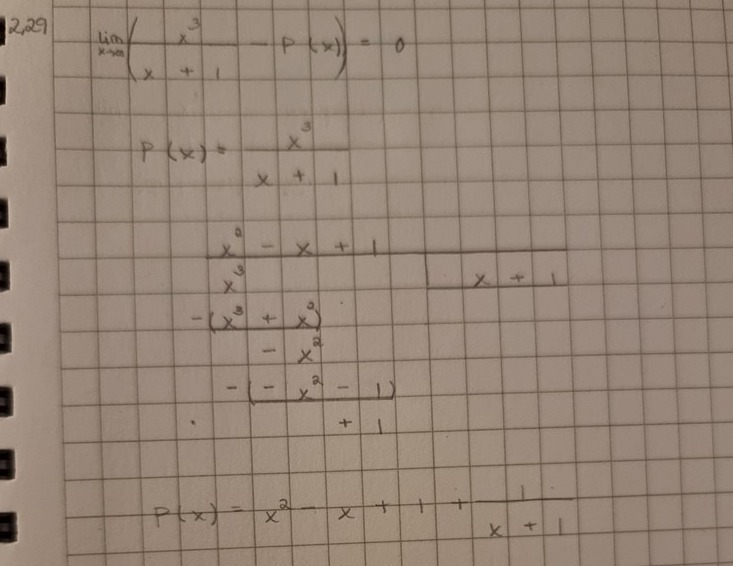 2.29 lim x→∞ ( x³ / x + 1 − P (x) ) = 0
P (x) = x³ / x + 1
x² − x + 1
x³ x + 1
−(x³ + x²)
− x²
−(− x² − 1)
+ 1
P (x) = x² − x + 1 + 1 / x + 1